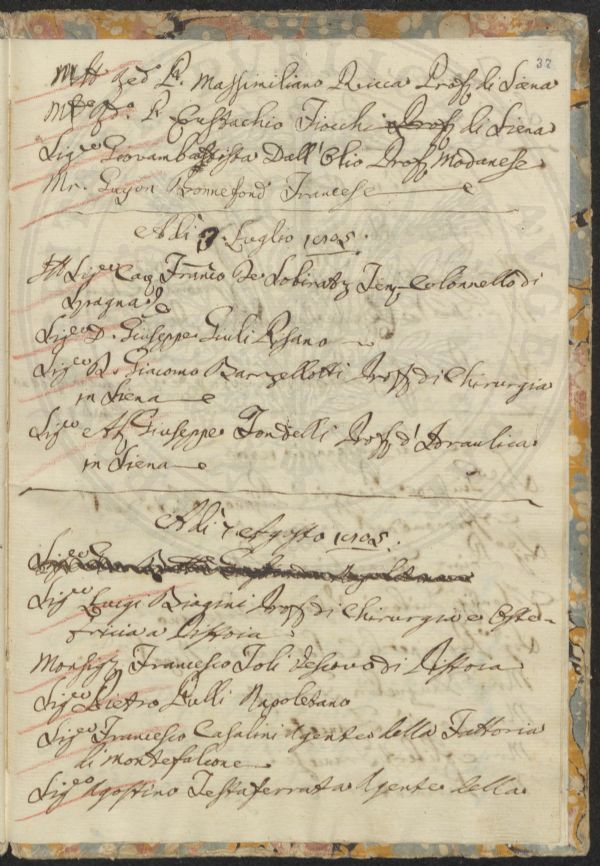 37
M.to Red. P. Massimiliano Ricca Prof. di Siena
M.to Rdo. P. Eustachio Fiocchi Prof. di Siena
Sig.re Giovambattista Dall'Olio Prof. Modanese
Mr. Guyon Bonnefond Francese
Adì 3 Luglio 1805.
Ill. Sig.re Cav. Franco De Ten. Colonnello di
Spagna
Sig.re D. Giuseppe Giuli Pisano
Sig.re Dr. Giacomo Barzellotti Prof. di Chirurgia
in Siena
Sig.re Ab. Giuseppe Tondelli Prof. d'Idraulica
in Siena
Adì 7 Agosto 1805.
Sig.re
Sig.re Luigi Biagini Prof. di Chirurgia e Oste-
tricia a Pistoia
Monsig. Francesco Toli Vescovo di Pistoia
Sig.re Pietro Lulli Napoletano
Sig.re Francesco Casalini Agente della Fattoria
di Montefalcone
Sig.re Agostino Testaferrata Agente della